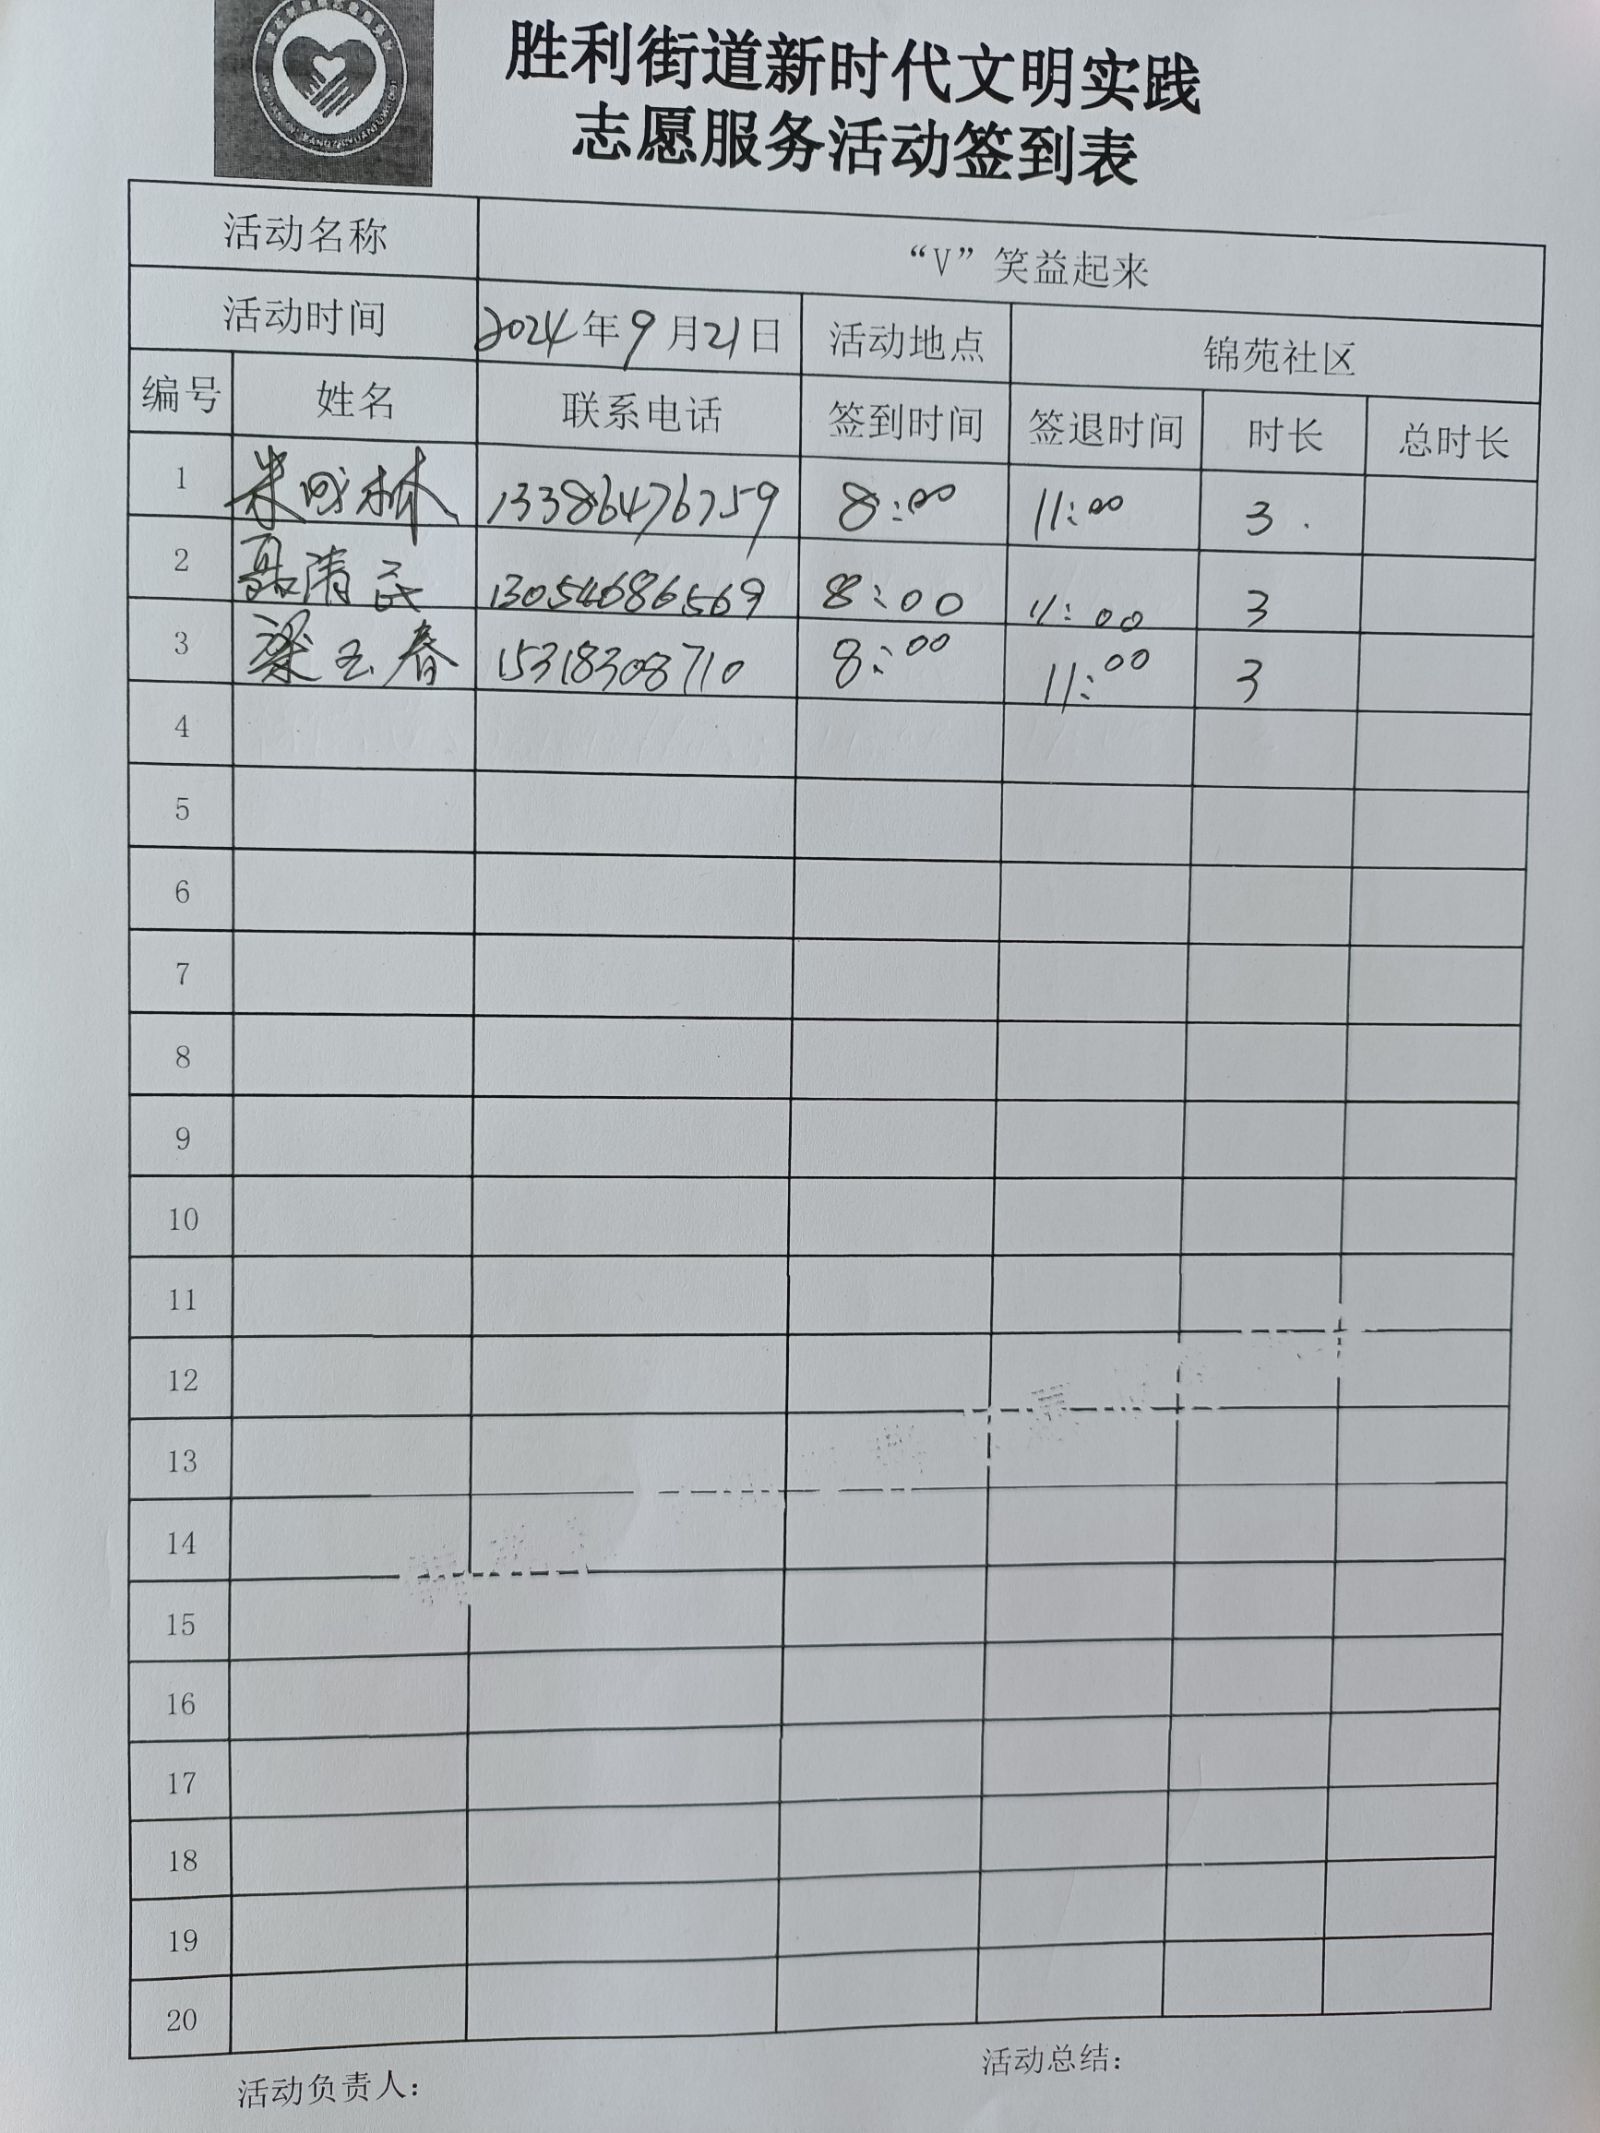 胜利街道新时代文明实践
志愿服务活动签到表
活动名称 “V”笑益起来
活动时间 2024年9月21日 活动地点 锦苑社区
编号 姓名 联系电话 签到时间 签退时间 时长 总时长
1 林 13386476759 8:00 11:00 3
2 聂清民 13054686569 8:00 11:00 3
3 梁玉春 15318308710 8:00 11:00 3
4
5
6
7
8
9
10
11
12
13
14
15
16
17
18
19
20
活动负责人： 活动总结：